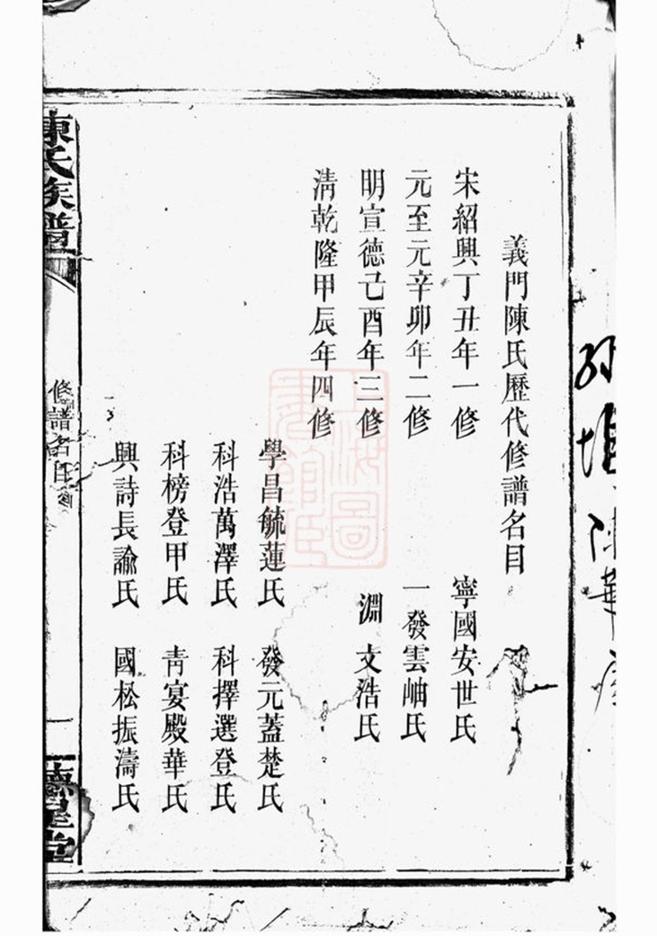 義門陳氏歷代修譜名目
宋紹興丁丑年一修 寧國安世氏
元至元辛卯年二修 一發雲岫氏
明宣德己酉年三修 淵文浩氏
清乾隆甲辰年四修
學昌毓蓮氏 發元蓋楚氏
科浩萬澤氏 科擇選登氏
科榜登甲氏 青宴殿華氏
興詩長諭氏 國松振濤氏
陳氏族譜
修譜名目
一
德星堂